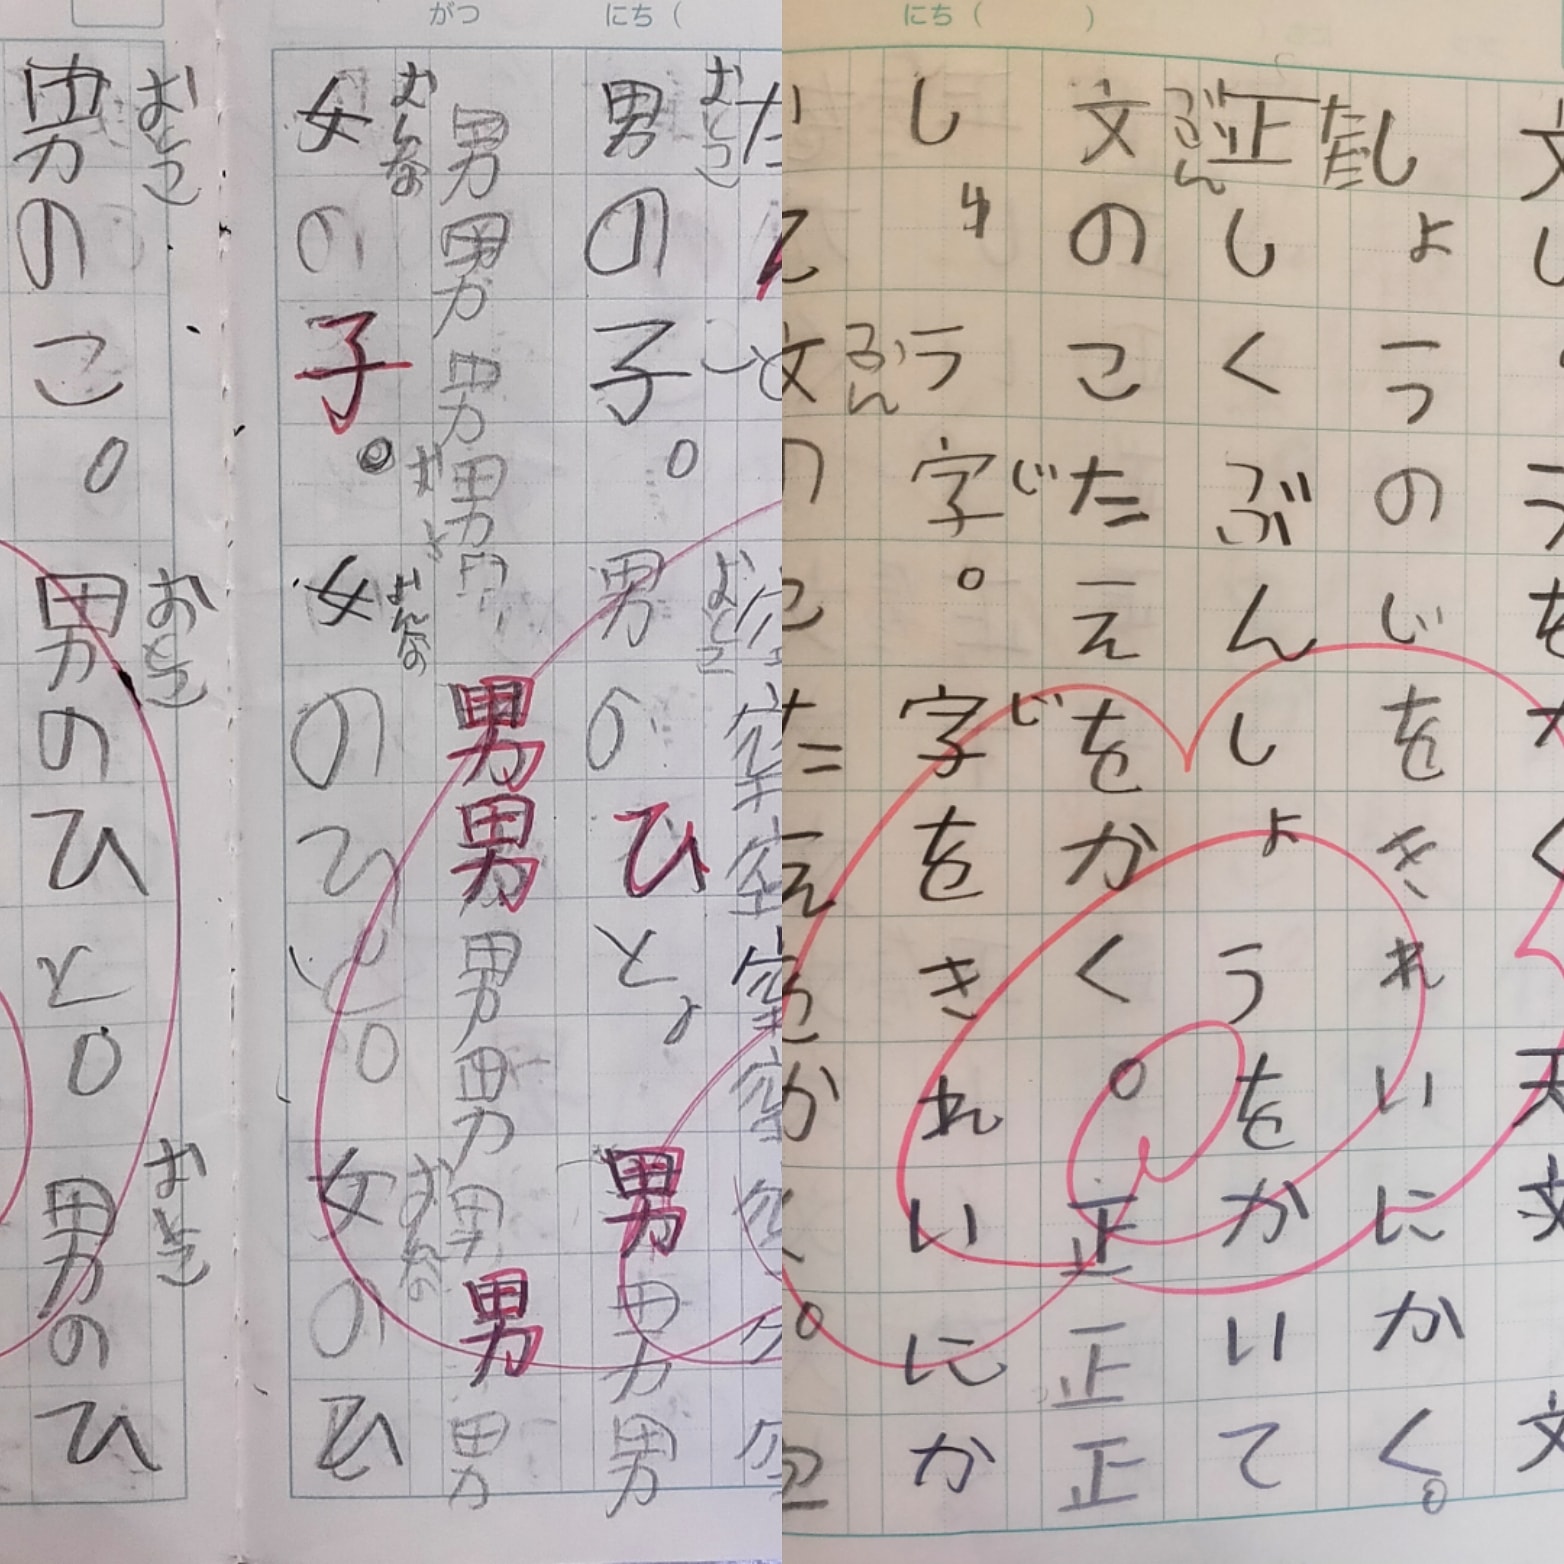 にち（　　）
しょうのじをきれいにかく。
ただ
正しくぶんしょうをかいて
ぶん
文のこたえをかく。正正正
じ　じ
しょう字。字をきれいにか
ぶん
がつ　にち（
おとこ　おとこ
男の子。男のひと、男男男
男男男男男男男男男男男
おんな　おんな　おんな
女の子。女のひと。女のひ
おとこ　おとこ　おとこ
男のこ。男のひと。男のひ